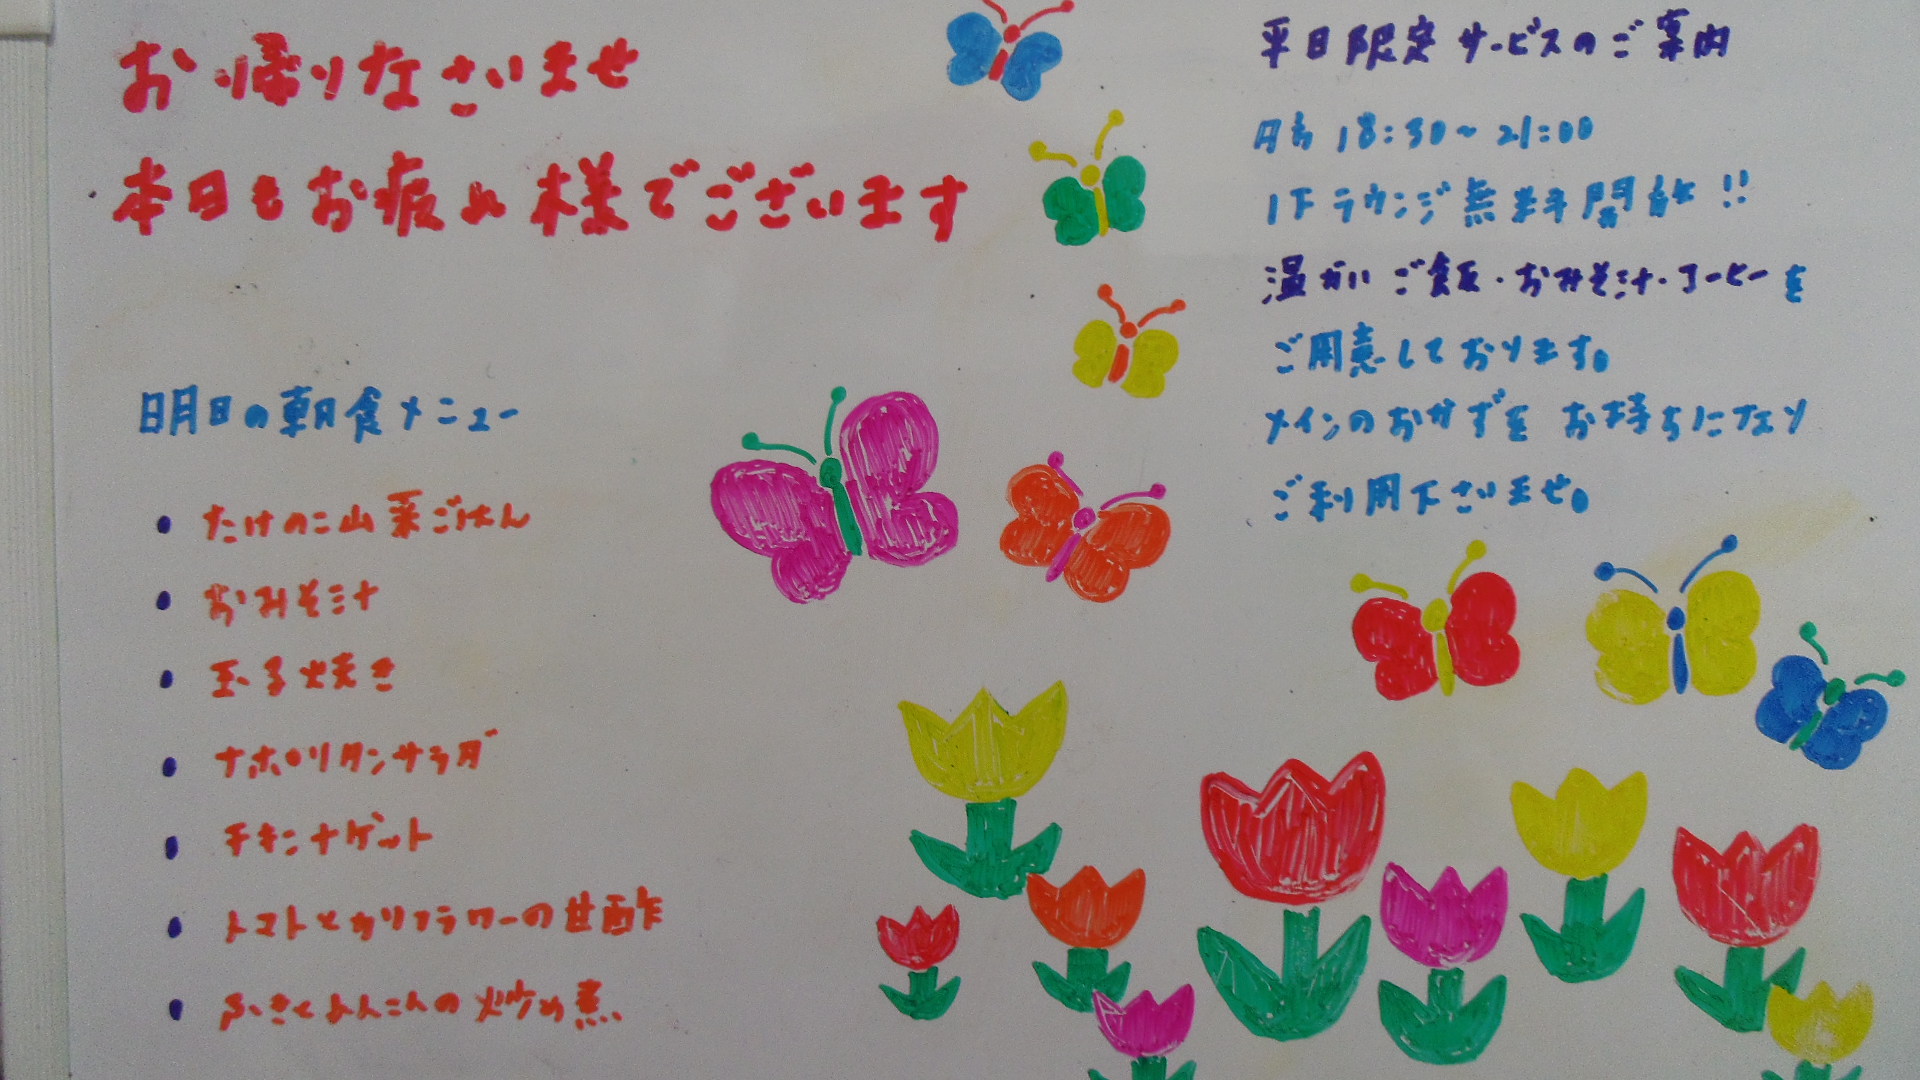 お帰りなさいませ
本日もお疲れ様でございます
明日の朝食メニュー
・たけのこ山菜ごはん
・おみそ汁
・玉子焼き
・ナポリタンサラダ
・チキンナゲット
・トマトとカリフラワーの甘酢
・ふきとこんにゃくの炒め煮
平日限定サービスのご案内
18:30~21:00
1Fラウンジ無料開放!!
温かいご飯・おみそ汁・コーヒーを
ご用意しております。
メインのおかずをお持ちになり
ご利用下さいませ。